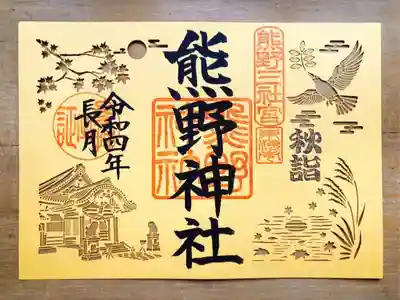 熊野三社宮
秋詣
熊野神社
熊野
神社
令和四年
長月